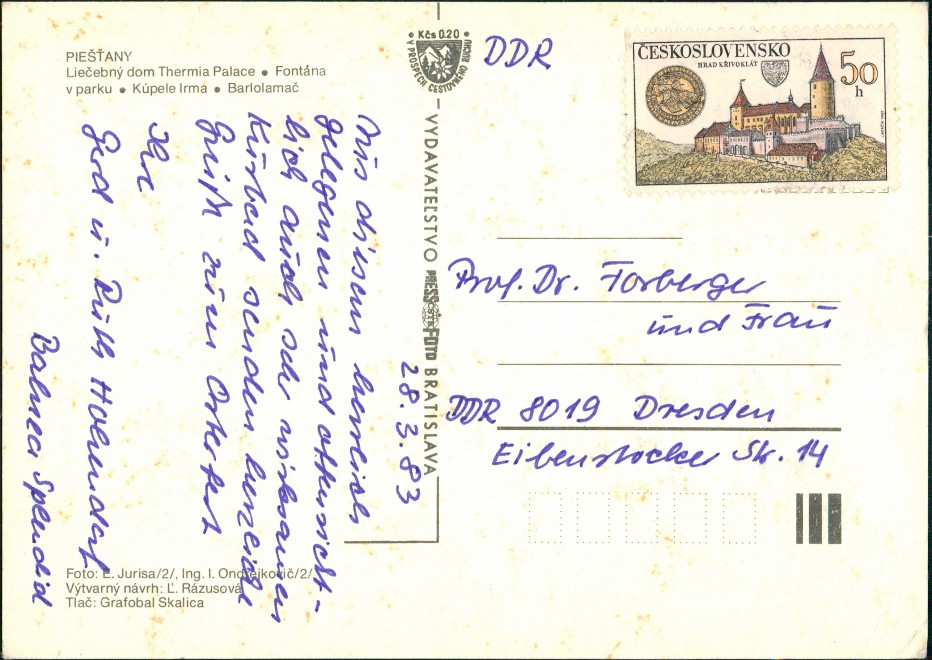 PIEŠŤANY
Liečebný dom Thermia Palace ● Fontána
v parku ● Kúpele Irma ● Barlolamač
Kčs 0.20
V PROSPECH CESTOVNÉHO RUCHU
DDR
ČESKOSLOVENSKO
HRAD KŘIVOKLÁT
50
h
28.3.83
Aus diesem herrlich
gelegenen und
lich auch sehr wirksamen
Kurbad senden herzliche
Grüße zum Osterfest
Ihre
Gerd u. Ruth
Balnea Splendid
VYDAVATEĽSTVO PRESSFOTO BRATISLAVA
Prof. Dr. Forberger
und Frau
DDR 8019 Dresden
Eibenstocker Str. 14
Foto: E. Jurisa/2/, Ing. I. Ondrejkovič/2/
Výtvarný návrh: Ľ. Rázusová
Tlač: Grafobal Skalica